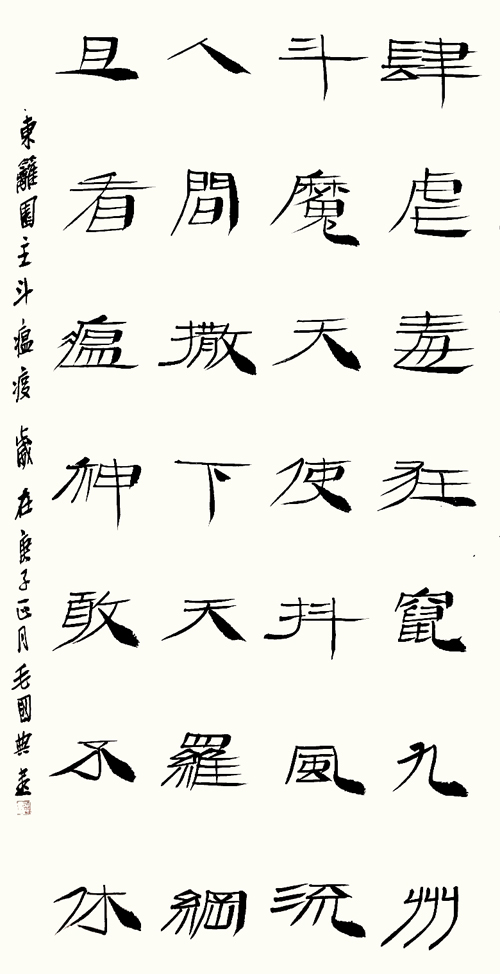 肆虐毒狂竄九州
斗魔天使抖風流
人間撒下天羅綱
且看瘟神敢不休
東籬園主斗瘟疫 歲在庚子正月毛國典書